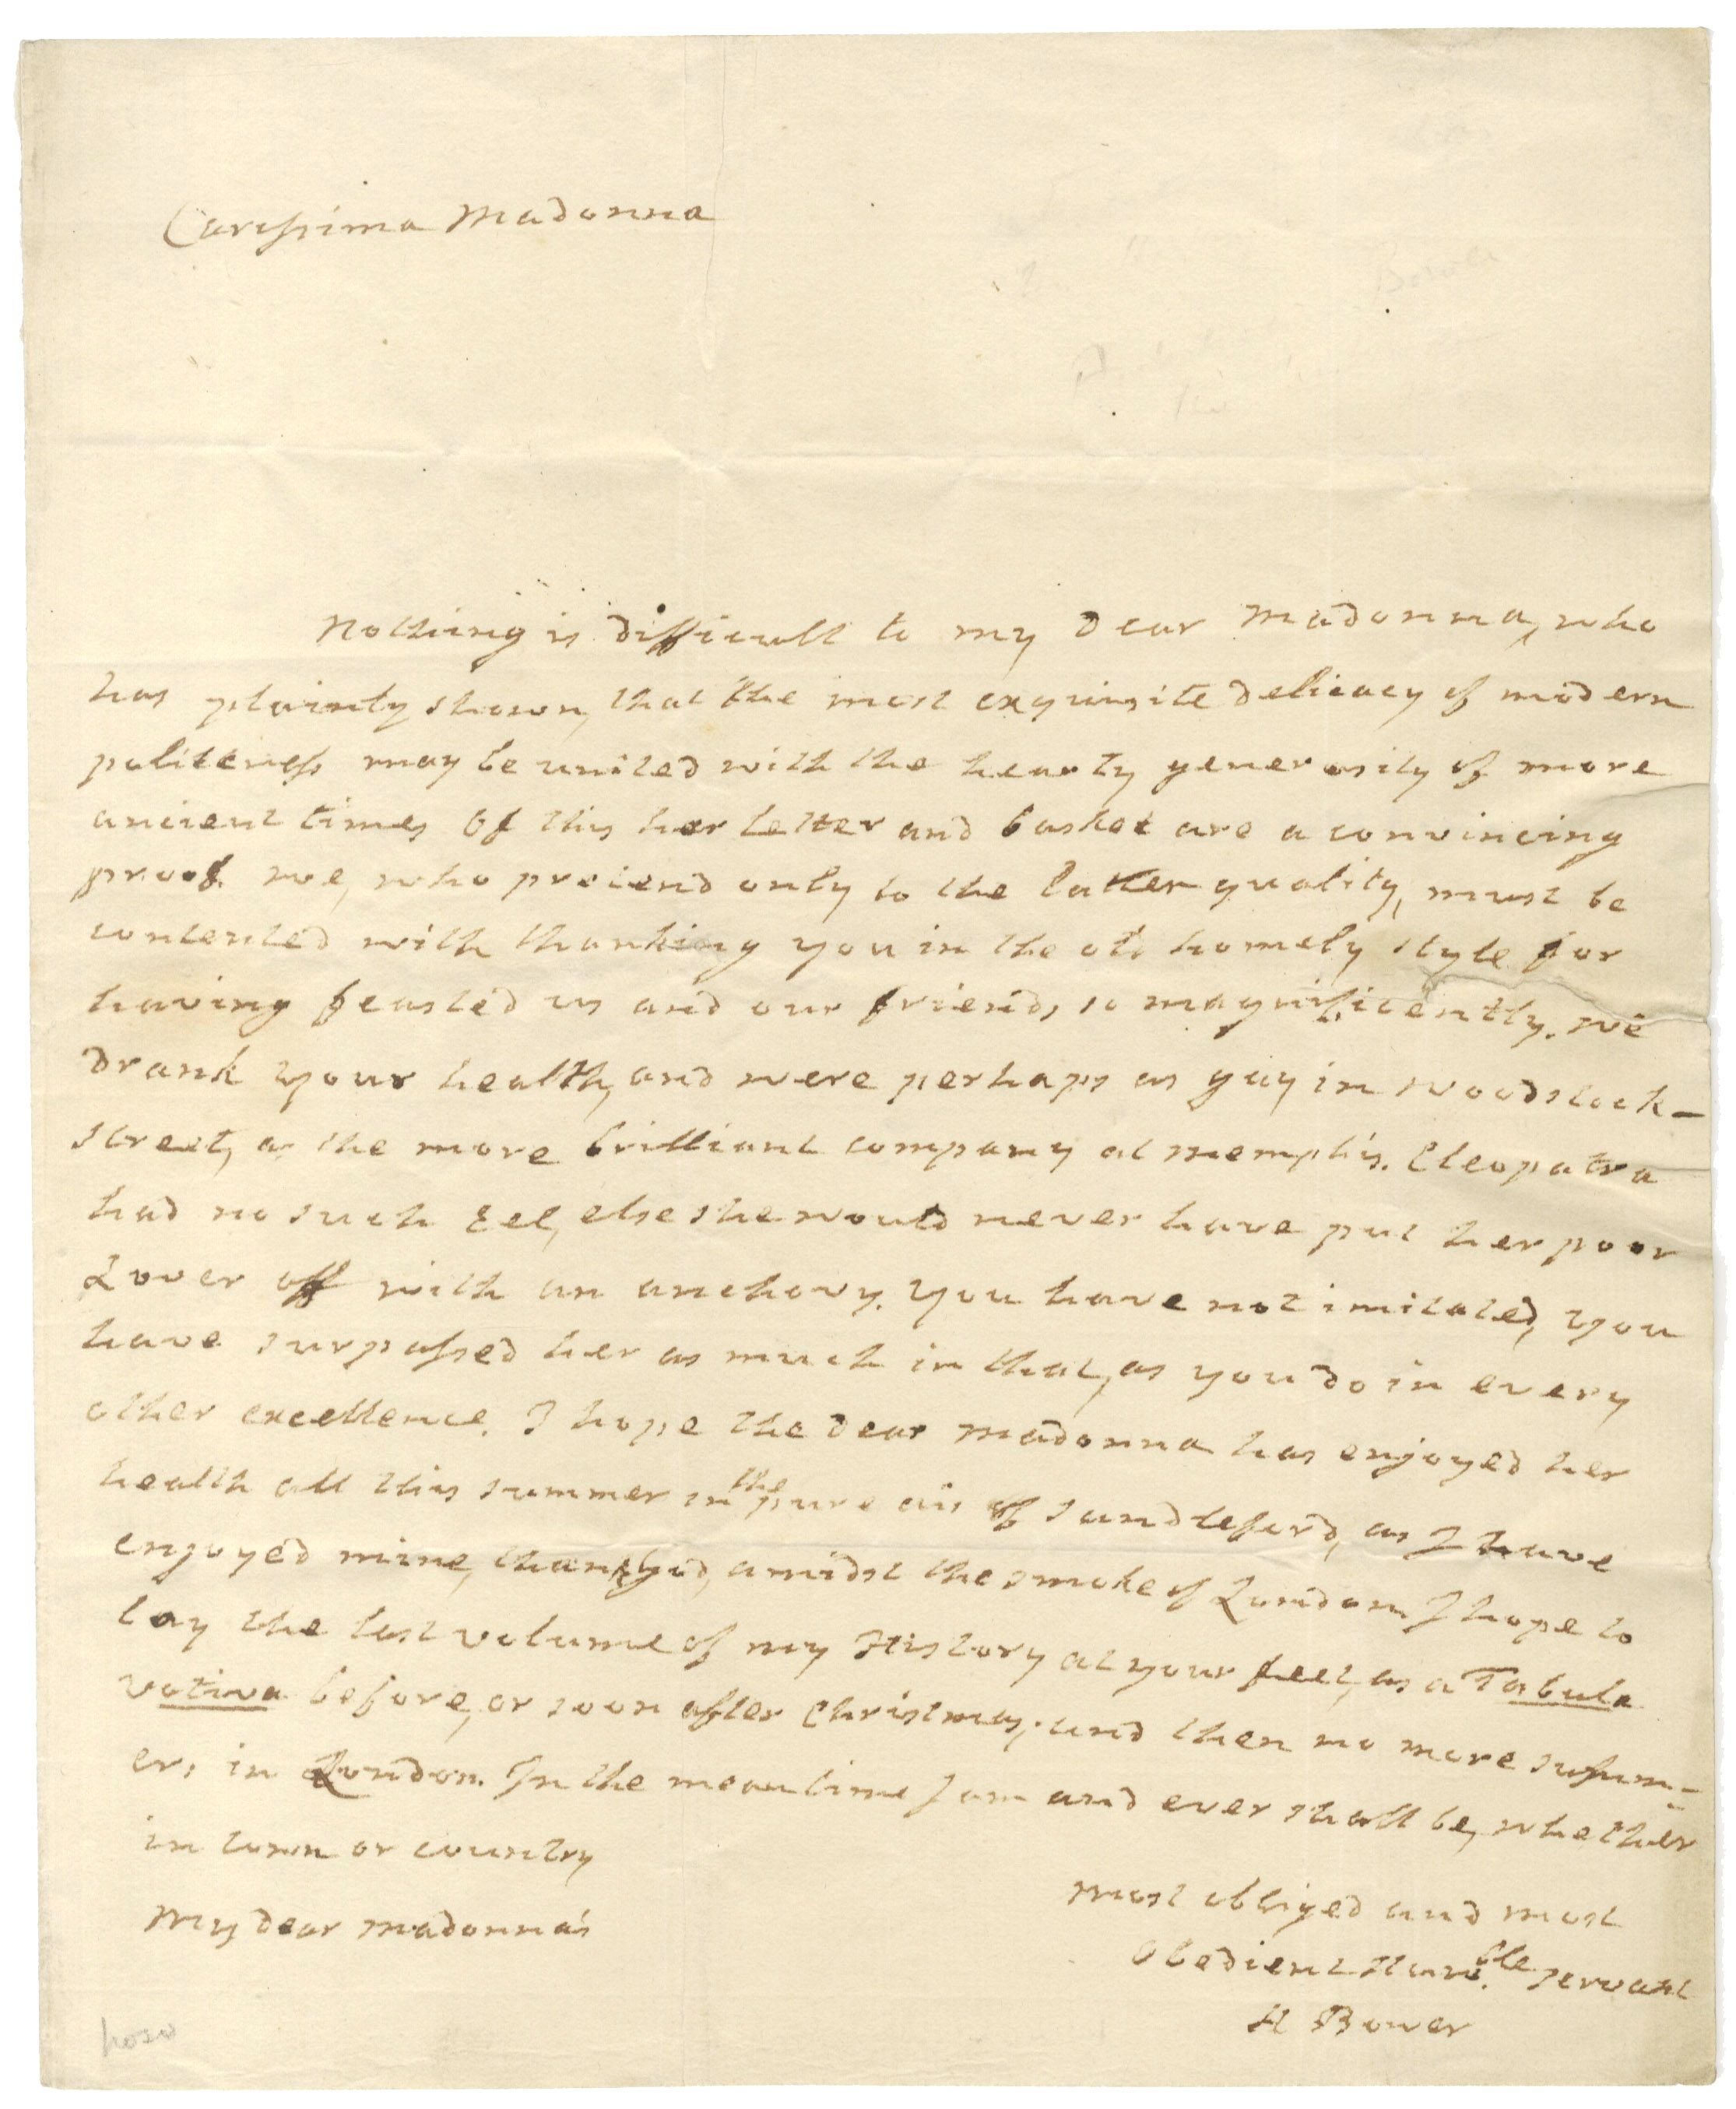 Carissima Madonna
Nothing is difficult to my Dear Madonna, who
has plainly shown, that the most exquisite delicacy of modern
politeness may be united with the hearty generosity of more
ancient times Of this her letter and basket are a convincing
proof. we, who pretend only to the latter quality, must be
contented with thanking you in the old homely style for
having feasted us and our friends so magnificently. we
drank your health, and were perhaps as gay in Woodstock-
street, as the more brilliant company at Memphis. Cleopatra
had no such Eel, else she would never have put her poor
Lover off with an anchovy. You have not imitated, you
have surpassed her as much in that, as you do in every
other excellence. I hope the Dear Madonna has enjoyed her
health all this summer in the pure air of Sandleford, as I have
enjoyed mine, thank God, amidst the smoke of London. I hope to
lay the last volume of my History at your feet, as a Tabula
votiva before, or soon after Christmas; and then no more summ-
ers in London. In the mean time I am and ever shall be, whether
in town or country
My Dear Madonna's
most obliged and most
Obedient Humble servant
A Bower